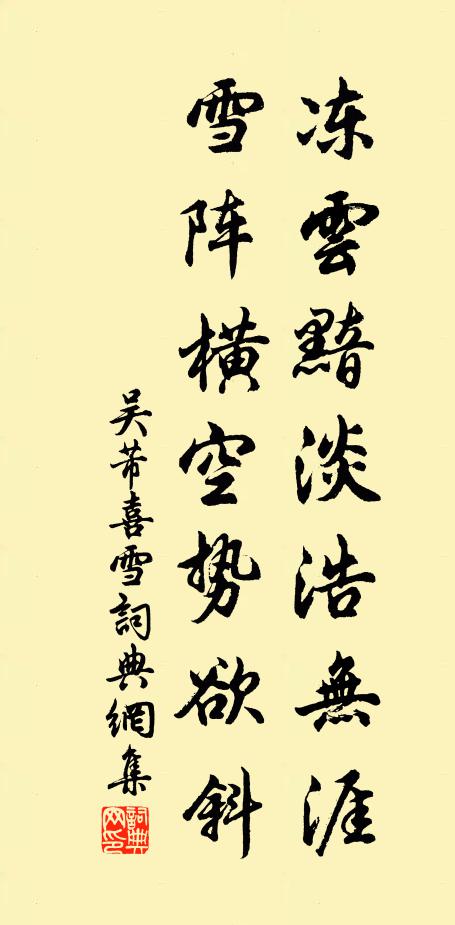 冻雲黯淡浩無涯
雪阵橫空势欲斜
吴芾喜雪詞典網集
詞典网印